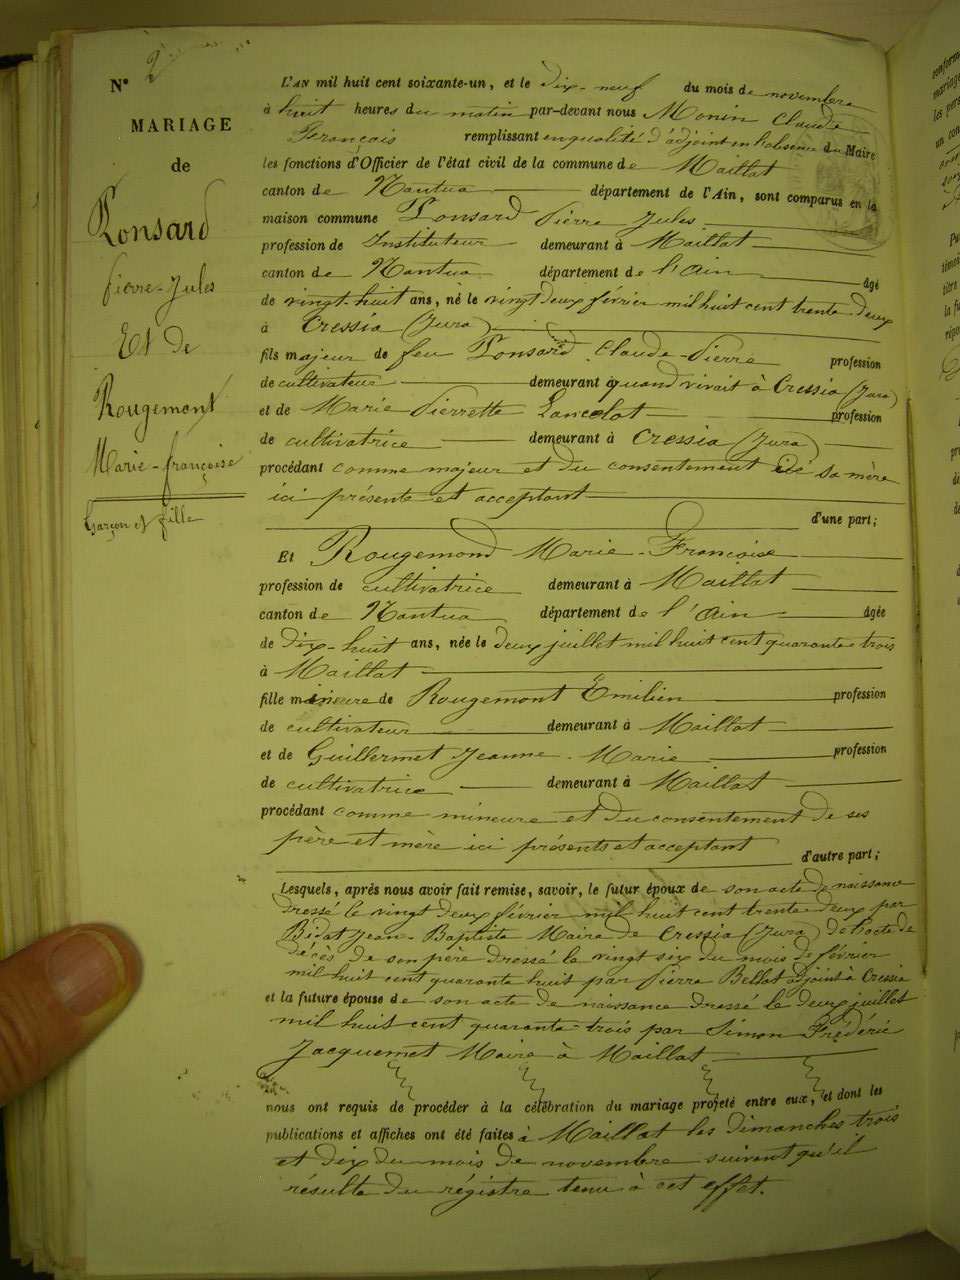 N° 2
MARIAGE
de
Ronsard
Pierre-Jules
Et de
Rougemont
Marie-françoise
Garçon et fille
L'AN mil huit cent soixante-un, et le dix-neuf du mois de novembre
à huit heures du matin par-devant nous Monin Claude
François remplissant en qualité d'adjoint en l'absence du Maire
les fonctions d'Officier de l'état civil de la commune de Maillat
canton de Nantua département de l'Ain, sont comparus en la
maison commune Ronsard Pierre Jules
profession de Instituteur demeurant à Maillat
canton de Nantua département de l'Ain âgé
de vingt-huit ans, né le vingt deux février mil huit cent trente deux
à Cressia (Jura)
fils majeur de feu Ronsard Claude-Pierre profession
de cultivateur demeurant quand vivait à Cressia (Jura)
et de Marie Pierrette Lancelot profession
de cultivatrice demeurant à Cressia (Jura)
procédant comme majeur et du consentement de sa mère
ici présente et acceptant
d'une part;
Et Rougemond Marie-Françoise
profession de cultivatrice demeurant à Maillat
canton de Nantua département de l'Ain âgée
de dix-huit ans, née le deux juillet mil huit cent quarante trois
à Maillat
fille mineure de Rougemont Emilien profession
de cultivateur demeurant à Maillat
et de Guillermet Jeanne-Marie profession
de cultivatrice demeurant à Maillat
procédant comme mineure et du consentement de ses
père et mère ici présents et acceptant
d'autre part;
Lesquels, après nous avoir fait remise, savoir, le futur époux de son acte de naissance
dressé le vingt deux février mil huit cent trente deux par
Bidat Jean-Baptiste Maire de Cressia (Jura) de l'acte de
décès de son père dressé le vingt six du mois de février
mil huit cent quarante huit par Pierre Bellot adjoint à Cressia
et la future épouse de son acte de naissance dressé le deux juillet
mil huit cent quarante-trois par Simon Frédéric
Jacquemet Maire à Maillat
nous ont requis de procéder à la célébration du mariage projeté entre eux, et dont les
publications et affiches ont été faites à Maillat les dimanches trois
et dix du mois de novembre suivant qu'il
résulte du régistre tenu à cet effet.